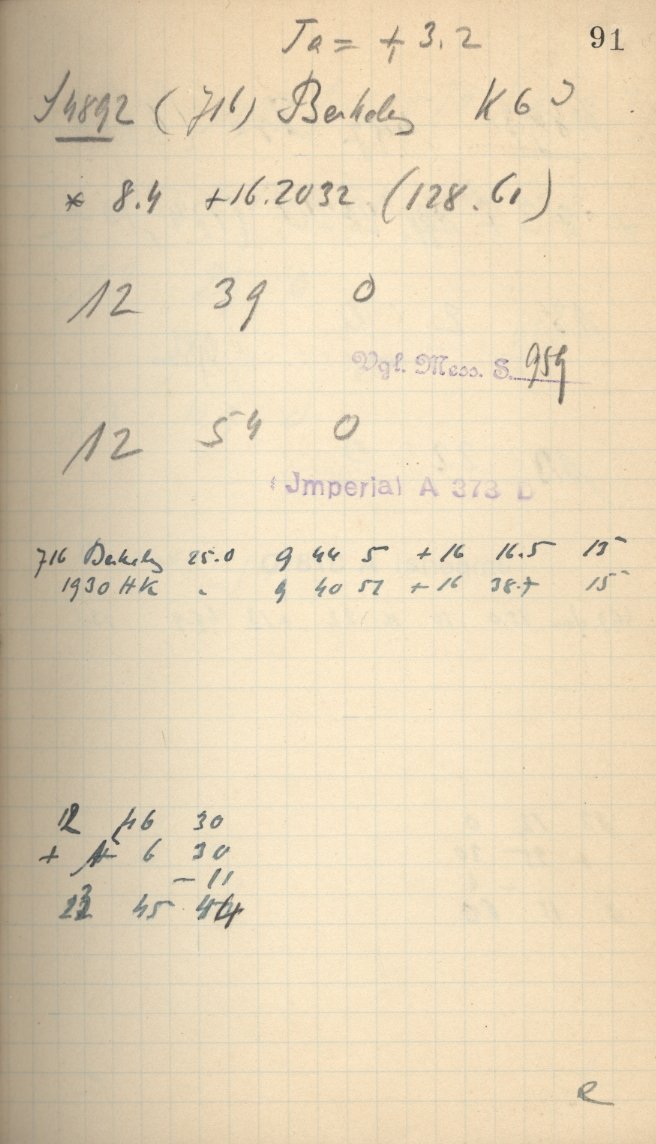 Ta = + 3.2 91
J4892 (716) Berkeley K6
* 8.4 +16.2032 (128.61)
12 39 0
Vgl. Mess. S. 959
12 54 0
Jmperial A 373 D
716 Berkeley 25.0 9 44 5 +16 16.5 15
1930 HK " 9 40 51 +16 38.7 15
12 46 30
+ 6 30
- 11
45 44
e